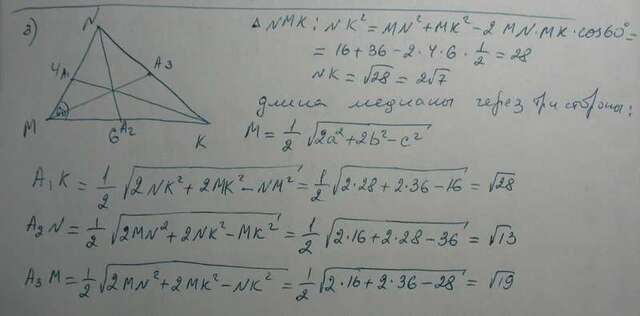 3)
N
4
A₁
A₃
M
60°
6
A₂
K
△ NMK: NK² = MN² + MK² - 2 MN·MK·cos60° =
= 16 + 36 - 2·4·6·1/2 = 28
NK = √28 = 2√7
длина медианы через три стороны:
M = 1/2 √(2a² + 2b² - c²)
A₁K = 1/2 √(2NK² + 2MK² - NM²) = 1/2 √(2·28 + 2·36 - 16) = √28
A₂N = 1/2 √(2MN² + 2NK² - MK²) = 1/2 √(2·16 + 2·28 - 36) = √13
A₃M = 1/2 √(2MN² + 2MK² - NK²) = 1/2 √(2·16 + 2·36 - 28) = √19